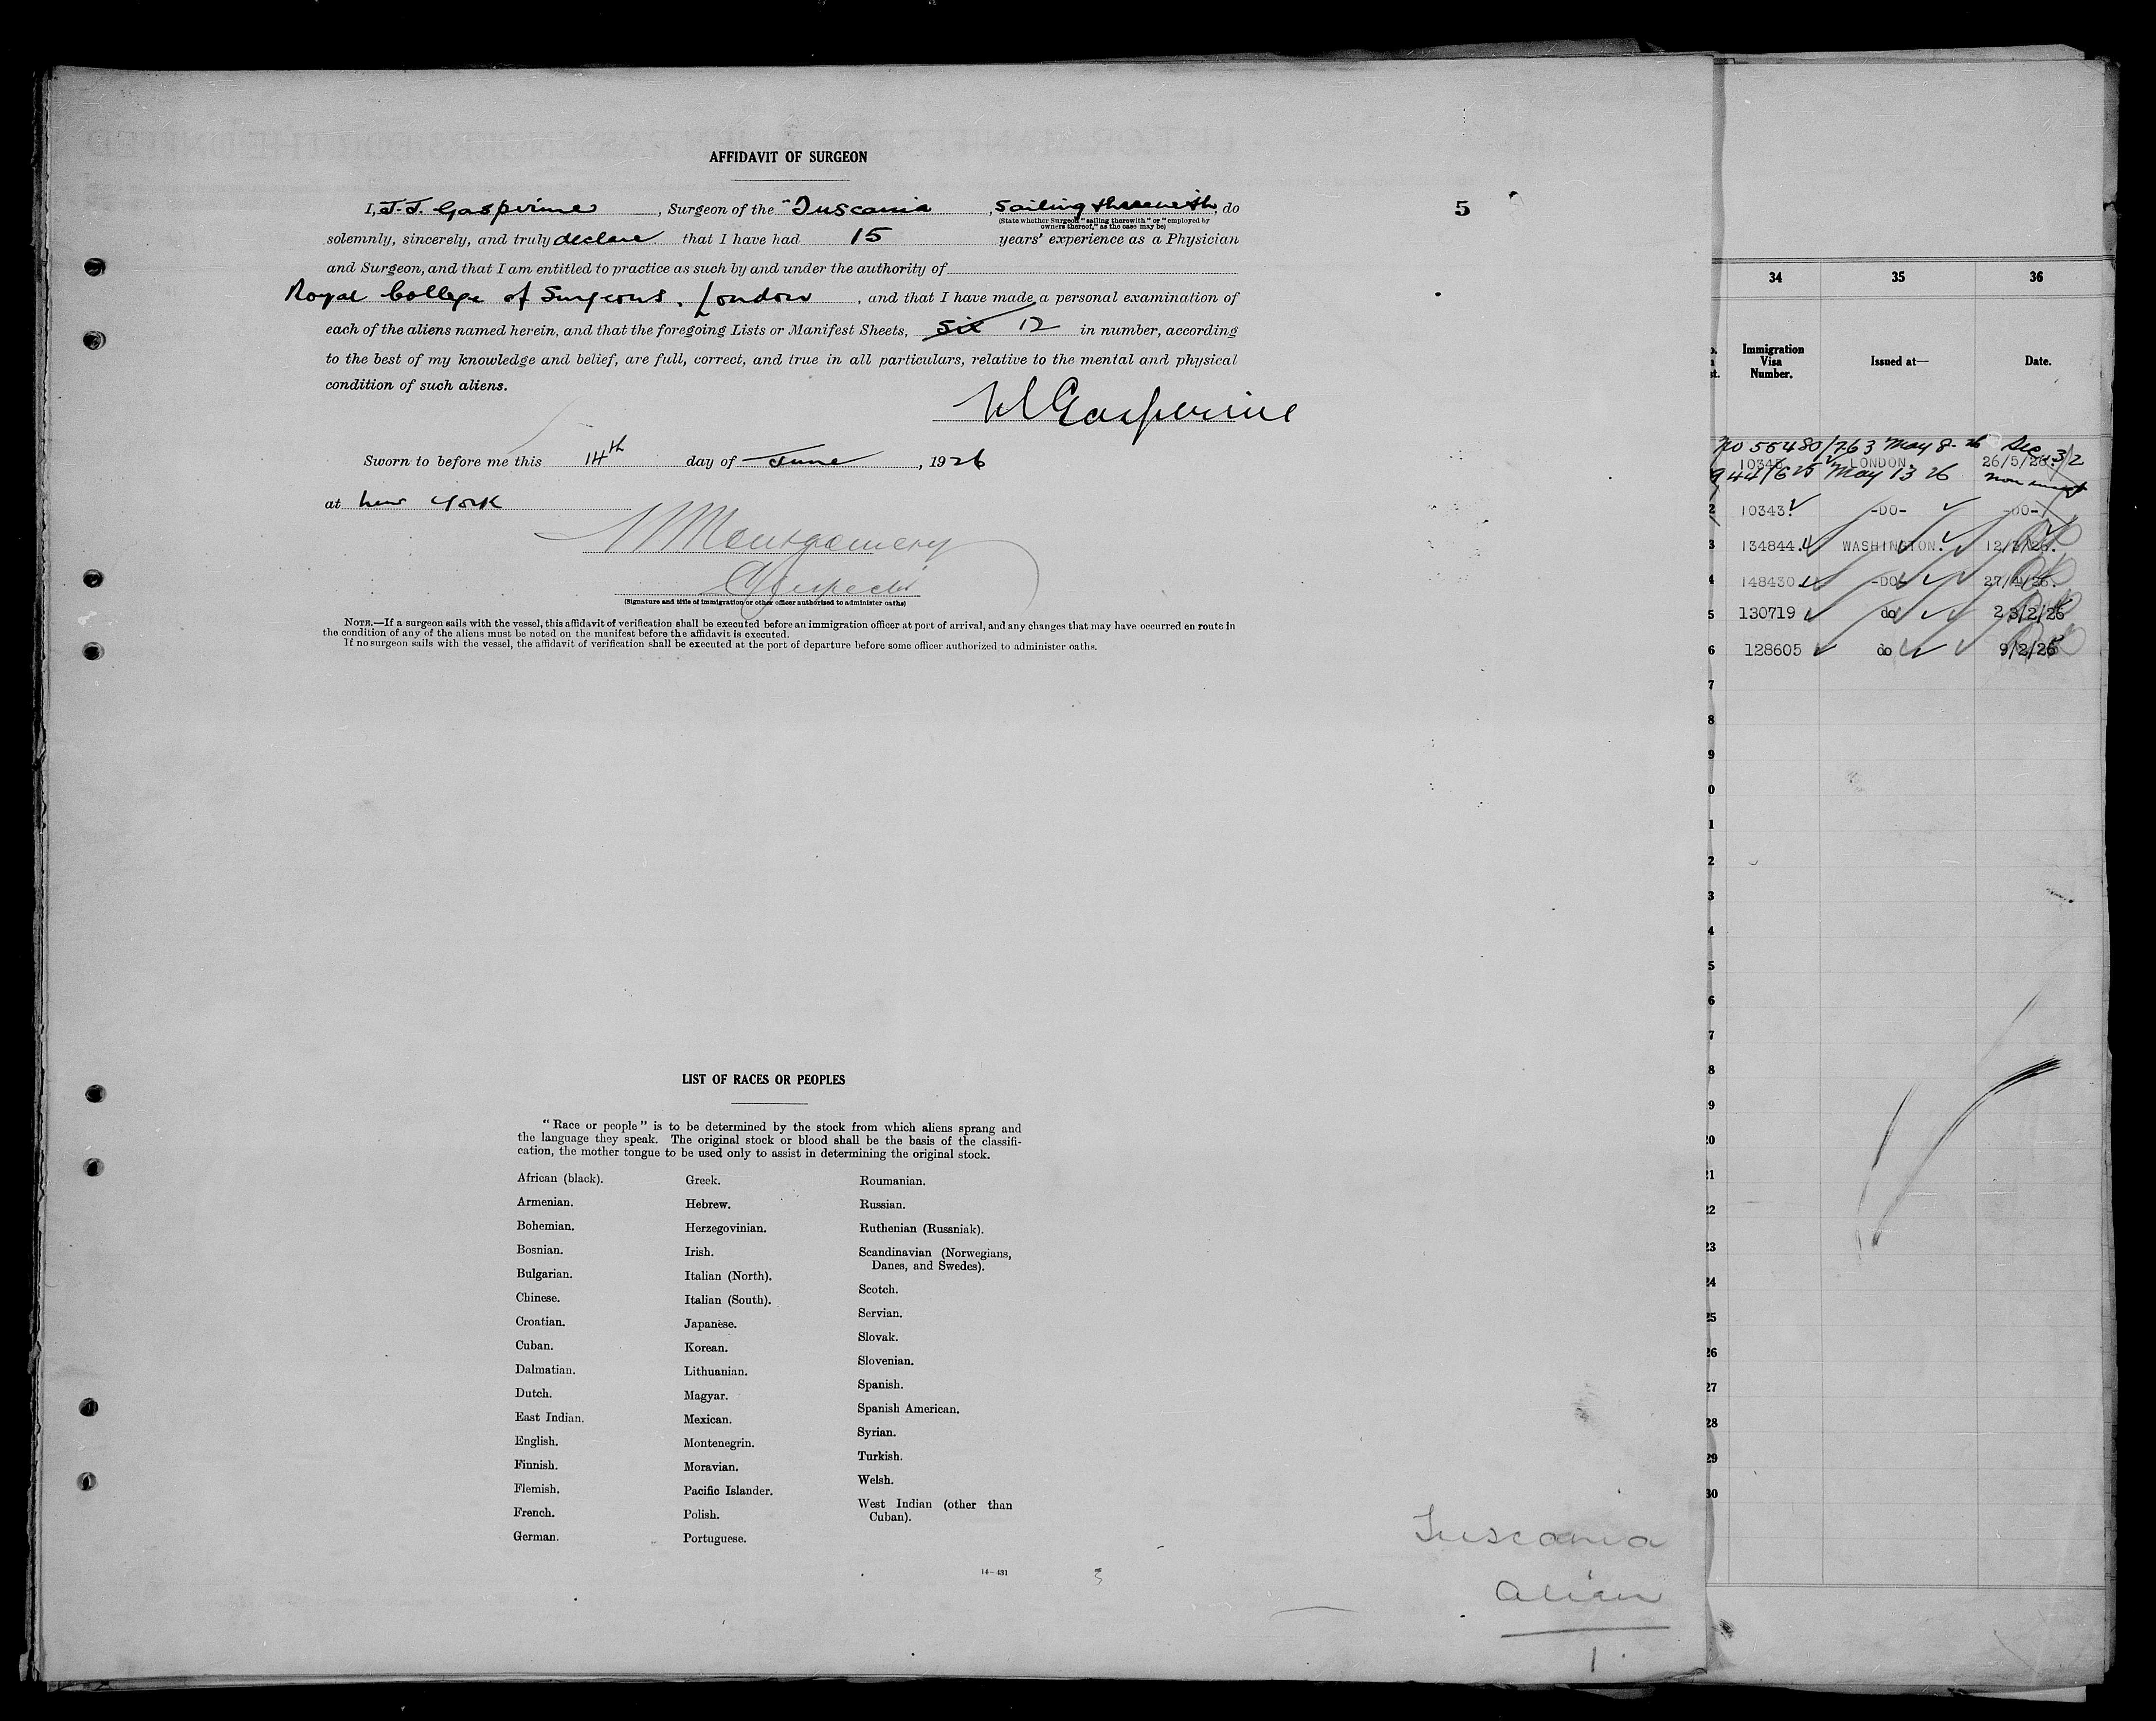 AFFIDAVIT OF SURGEON
I, J. J. Gasperine, Surgeon of the "Tuscania, sailing therewith, do
(State whether Surgeon "sailing therewith" or "employed by
owners thereof," as the case may be)
solemnly, sincerely, and truly declare that I have had 15 years' experience as a Physician
and Surgeon, and that I am entitled to practice as such by and under the authority of
Royal College of Surgeons. London, and that I have made a personal examination of
each of the aliens named herein, and that the foregoing Lists or Manifest Sheets, Six 12 in number, according
to the best of my knowledge and belief, are full, correct, and true in all particulars, relative to the mental and physical
condition of such aliens.
Gasperine
Sworn to before me this 14th day of June, 1926
at New York
Montgomery
(Signature and title of immigration or other officer authorized to administer oaths)
NOTE.—If a surgeon sails with the vessel, this affidavit of verification shall be executed before an immigration officer at port of arrival, and any changes that may have occurred en route in
the condition of any of the aliens must be noted on the manifest before the affidavit is executed.
If no surgeon sails with the vessel, the affidavit of verification shall be executed at the port of departure before some officer authorized to administer oaths.
5
LIST OF RACES OR PEOPLES
"Race or people" is to be determined by the stock from which aliens sprang and
the language they speak. The original stock or blood shall be the basis of the classifi-
cation, the mother tongue to be used only to assist in determining the original stock.
African (black).
Armenian.
Bohemian.
Bosnian.
Bulgarian.
Chinese.
Croatian.
Cuban.
Dalmatian.
Dutch.
East Indian.
English.
Finnish.
Flemish.
French.
German.
Greek.
Hebrew.
Herzegovinian.
Irish.
Italian (North).
Italian (South).
Japanese.
Korean.
Lithuanian.
Magyar.
Mexican.
Montenegrin.
Moravian.
Pacific Islander.
Polish.
Portuguese.
Roumanian.
Russian.
Ruthenian (Russniak).
Scandinavian (Norwegians,
Danes, and Swedes).
Scotch.
Servian.
Slovak.
Slovenian.
Spanish.
Spanish American.
Syrian.
Turkish.
Welsh.
West Indian (other than
Cuban).
14—431
3
Tuscania
Alien
1
34 35 36
Immigration
Visa
Number.
Issued at—
Date.
No 55480/763 May 8-26 Sec 3/2
10345 LONDON 26/5/26.
944/625 May 13 26
2 10343. -DO- -DO-
3 134844. WASHINGTON.
4 148430 -DO- 27/4/26.
5 130719 do 23/2/26
6 128605 do 9/2/26
7
8
9
0
1
2
3
4
5
6
7
8
9
20
21
22
23
24
25
26
27
28
29
30